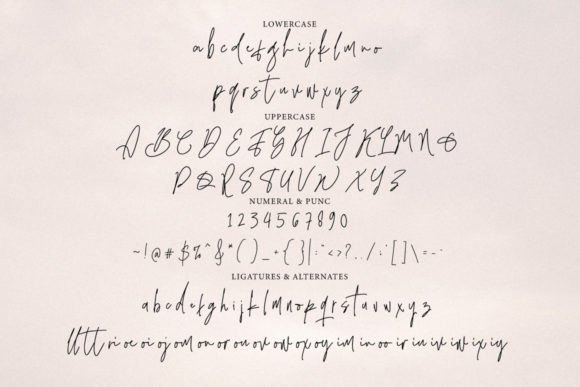 LOWERCASE
abcdefghijklmno
pqrstuvwxyz
UPPERCASE
ABCDEFGHIJKLMNO
PQRSTUVWXYZ
NUMERAL & PUNC
1234567890
~!@#$%^&*()_+{}|:"<>?../;'[]\=-`
LIGATURES & ALTERNATES
abcdefghijklmnopqrstuvwxyz
ri oe oi oj om on or ou ov ow ox oy im in oo ir iu iv iw ix iy